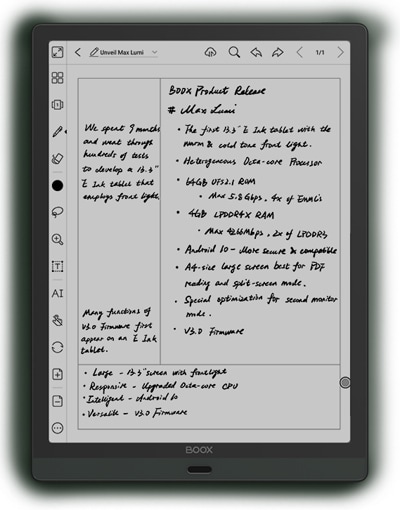 Unveil Max Lumi
1/1
BOOX Product Release
# Max Lumi
We spent 9 months
and went through
hundreds of tests
to develop a 13.3"
E Ink tablet that
employs front light.
• The first 13.3" E Ink tablet with the
warm & cold tone front light.
• Heterogeneous Octa-core Processor
• 64GB UFS2.1 ROM
• Max 5.8Gbps, 4x of EMMCs
• 4GB LPDDR4X RAM
• Max 4266Mbps, 2x of LPDDR3
• Android 10 - More secure & compatible
• A4-size large screen best for PDF
reading and split-screen mode.
• Special optimization for second monitor
mode.
• V3.0 Firmware
Many functions of
V3.0 Firmware first
appear on an E Ink
tablet.
• Large - 13.3" screen with frontlight
• Responsive - Upgraded Octa-core CPU
• Intelligent - Android 10
• Versatile - V3.0 Firmware
AI
BOOX